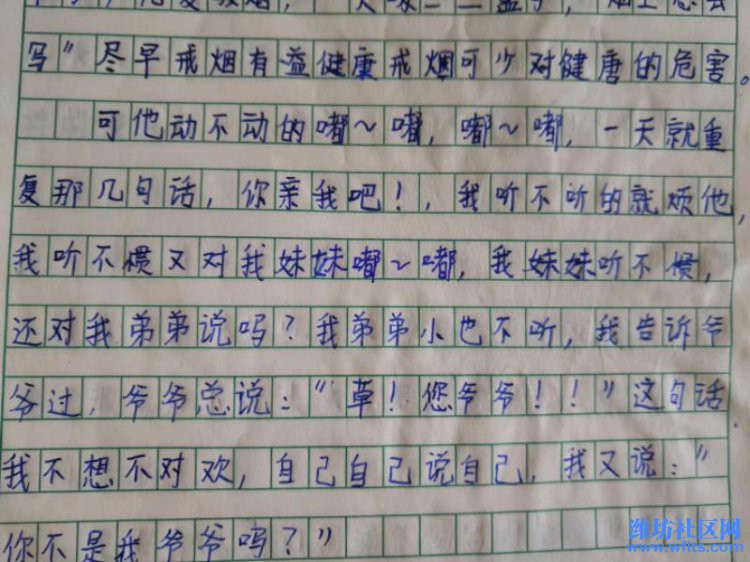 写"尽早戒烟有益健康戒烟可少对健唐的危害。
可他动不动的嘟~嘟，嘟~嘟，一天就重
复那几句话，你亲我吧！，我听不听的就烦他，
我听不惯又对我妹妹嘟~嘟，我妹妹听不惯，
还对我弟弟说吗？我弟弟小也不听，我告诉爷
爷过，爷爷总说："草！您爷爷！！"这句话
我不想不对欢，自己自己说自己，我又说："
你不是我爷爷吗？"
潍坊社区网
www.wfits.com